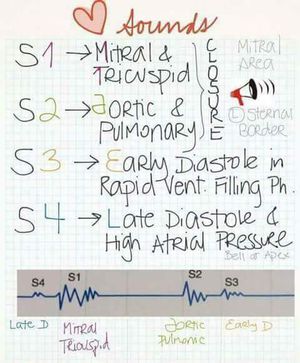 Sounds
S1 → Mitral & Tricuspid
CLOSURE
Mitral Area
S2 → Aortic & Pulmonary
Ⓛ Sternal Border
S3 → Early Diastole in Rapid Vent. Filling Ph.
S4 → Late Diastole & High Atrial Pressure
Bell at Apex
S4 S1 S2 S3
Late D
Mitral Tricuspid
Aortic Pulmonic
Early D